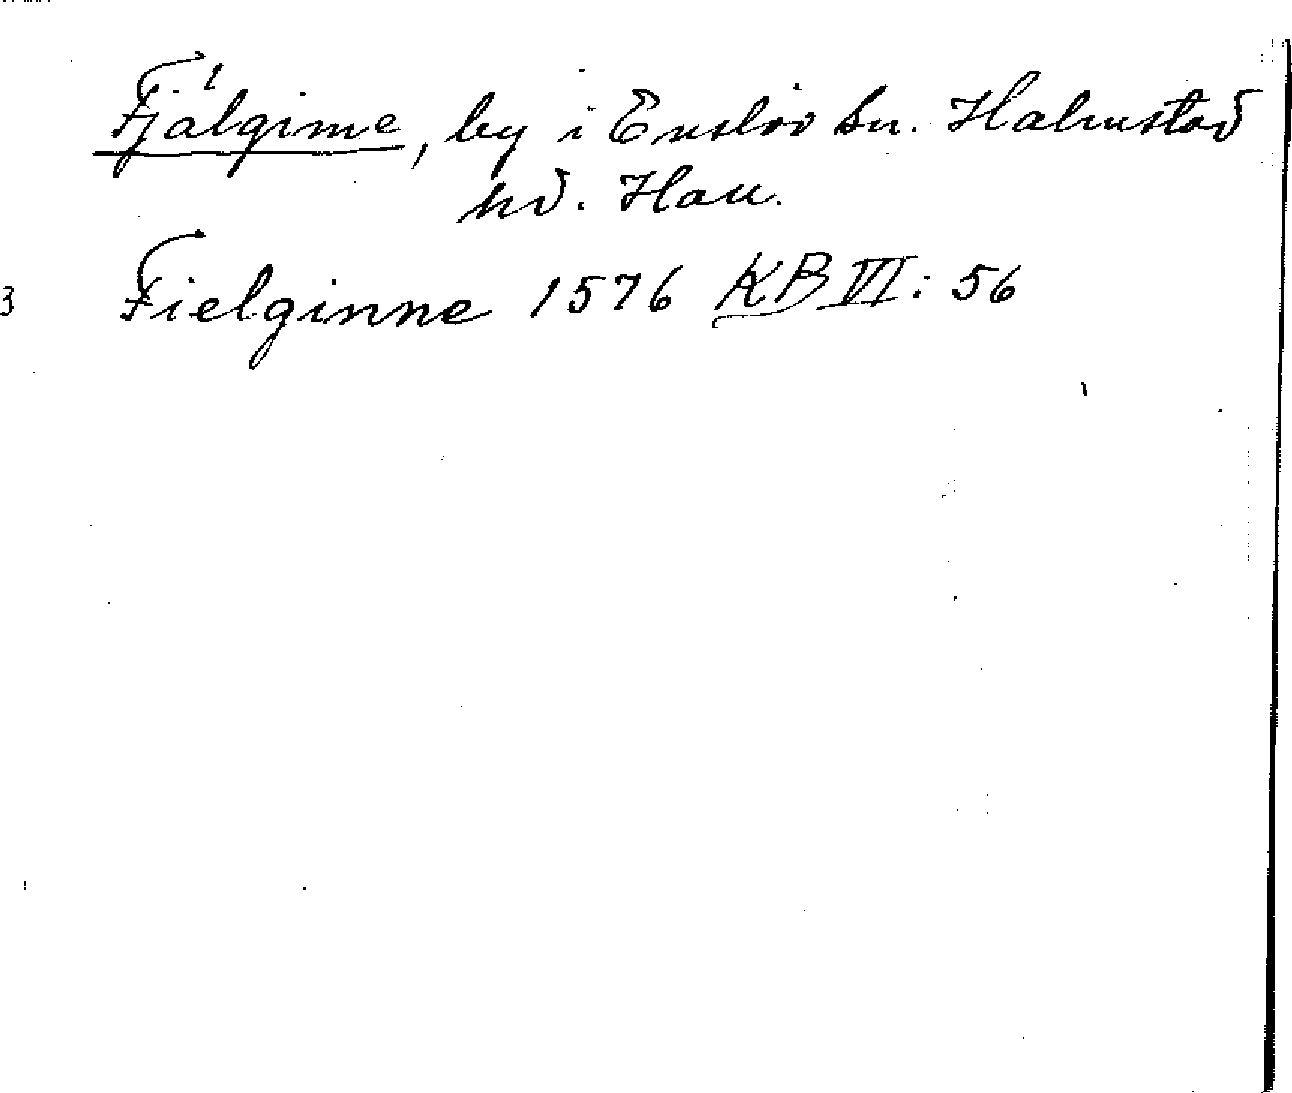 Fjälgime, by i Enslöv sn. Halmstad
hd. Hall.
3 Fielginne 1576 KB VI: 56